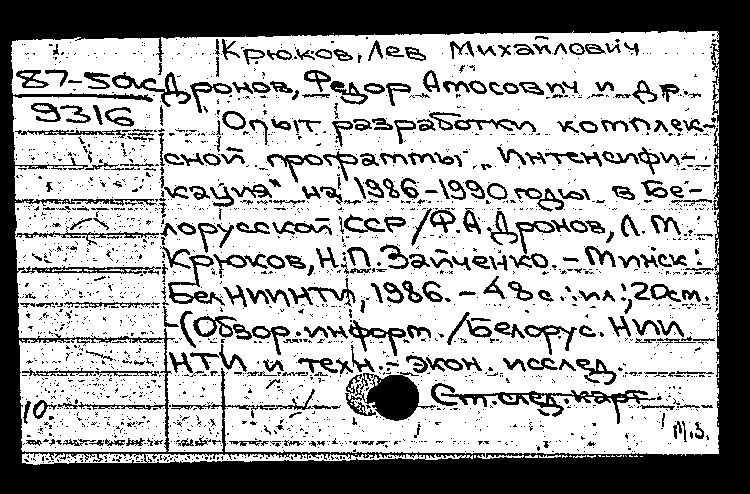 Крюков, Лев Михайлович
87-50яс Дронов, Федор Амосович и др.
9316 Опыт разработки комплек-
сной программы „Интенсифи-
кация" на 1986-1990 годы в Бе-
лорусской ССР / Ф.А. Дронов, Л.М.
Крюков, Н.П. Зайченко. - Минск:
БелНИИНТИ, 1986. - 48 с.: ил.; 20 см.
-(Обзор. информ. / Белорус. НИИ
НТИ и техн.-экон. исслед.
Ст. след. карт
10.
М.З.